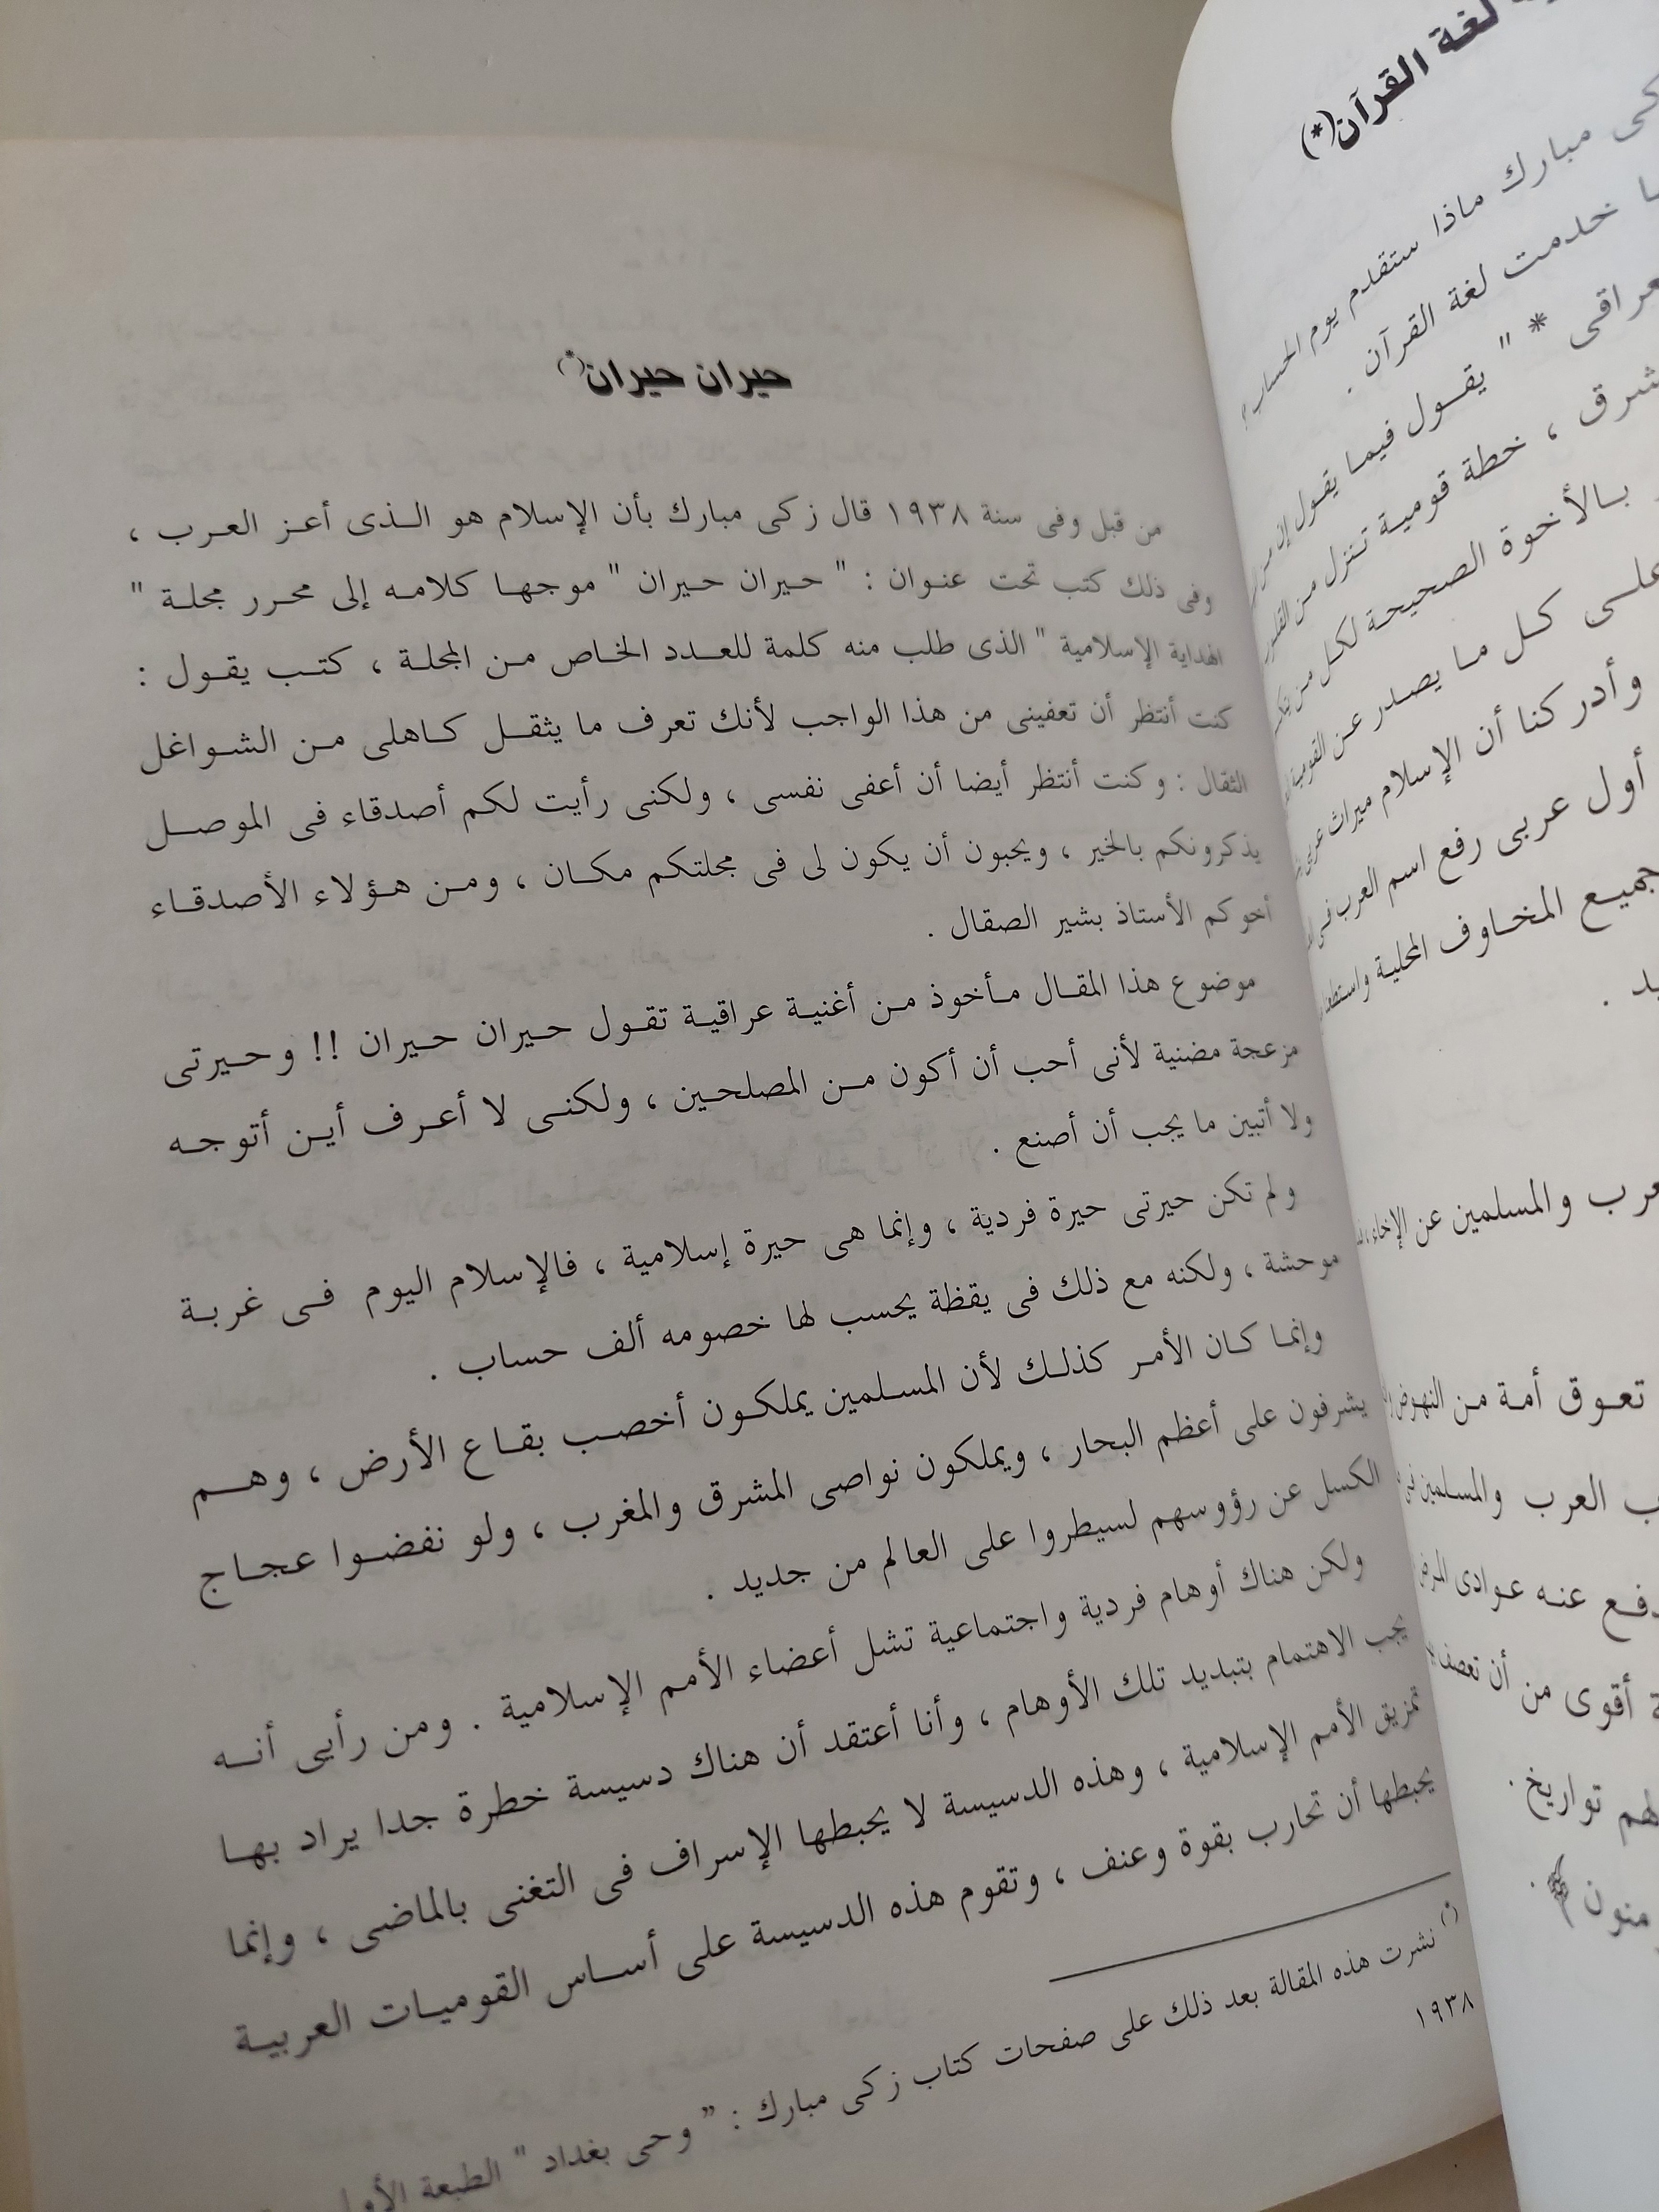 لغة القرآن(*)
مبارك ماذا ستقدم يوم الحساب ؟
خدمت لغة القرآن .
* " يقول فيما يقول إن
، خطة قومية تنزل من
بالأخوة الصحيحة لكل من
كل ما يصدر عن القومية
وأدركنا أن الإسلام ميراث
أول عربى رفع اسم العرب فى
المخاوف المحلية
والمسلمين عن الإخاء ،
تعوق أمة من النهوض
العرب والمسلمين فى
عنه عوادى
أقوى من أن تعصف
تواريخ .
حيران حيران(*)
من قبل وفى سنة ١٩٣٨ قال زكى مبارك بأن الإسلام هو الذى أعز العرب ،
وفى ذلك كتب تحت عنوان : " حيران حيران " موجها كلامه إلى محرر مجلة "
الهداية الإسلامية " الذى طلب منه كلمة للعدد الخاص من المجلة ، كتب يقول :
كنت أنتظر أن تعفينى من هذا الواجب لأنك تعرف ما يثقل كاهلى من الشواغل
الثقال : وكنت أنتظر أيضا أن أعفى نفسى ، ولكنى رأيت لكم أصدقاء فى الموصل
يذكرونكم بالخير ، ويحبون أن يكون لى فى مجلتكم مكان ، ومن هؤلاء الأصدقاء
أخوكم الأستاذ بشير الصقال .
موضوع هذا المقال مأخوذ من أغنية عراقية تقول حيران حيران !! وحيرتى
مزعجة مضنية لأنى أحب أن أكون من المصلحين ، ولكنى لا أعرف أين أتوجه
ولا أتبين ما يجب أن أصنع .
ولم تكن حيرتى حيرة فردية ، وإنما هى حيرة إسلامية ، فالإسلام اليوم فى غربة
موحشة ، ولكنه مع ذلك فى يقظة يحسب لها خصومه ألف حساب .
وإنما كان الأمر كذلك لأن المسلمين يملكون أخصب بقاع الأرض ، وهم
يشرفون على أعظم البحار ، ويملكون نواصى المشرق والمغرب ، ولو نفضوا عجاج
الكسل عن رؤوسهم لسيطروا على العالم من جديد .
ولكن هناك أوهام فردية واجتماعية تشل أعضاء الأمم الإسلامية . ومن رأيى أنه
يجب الاهتمام بتبديد تلك الأوهام ، وأنا أعتقد أن هناك دسيسة خطرة جدا يراد بها
تمزيق الأمم الإسلامية ، وهذه الدسيسة لا يحبطها الإسراف فى التغنى بالماضى ، وإنما
يحبطها أن تحارب بقوة وعنف ، وتقوم هذه الدسيسة على أساس القوميات العربية
(*) نشرت هذه المقالة بعد ذلك على صفحات كتاب زكى مبارك : " وحى بغداد " الطبعة
١٩٣٨